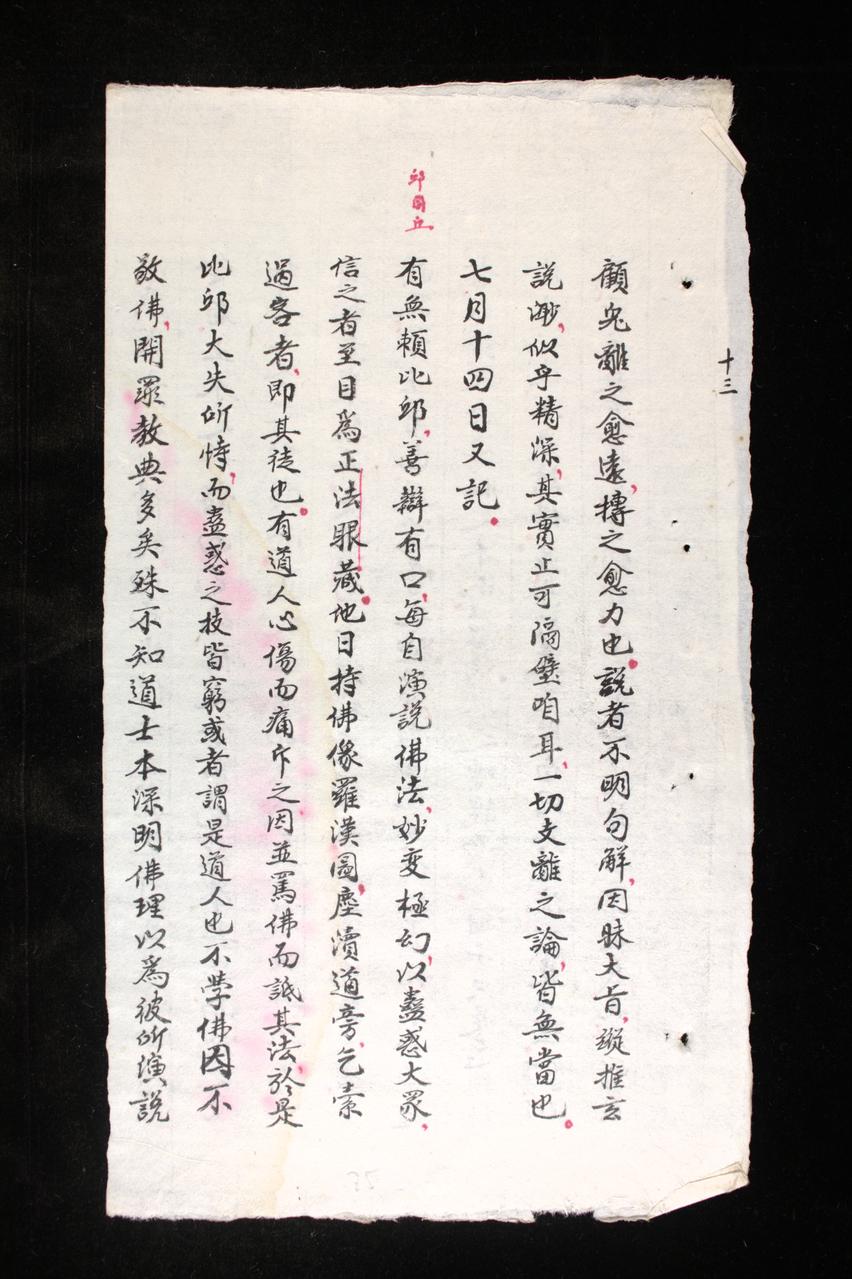 十三
顧鬼離之愈遠，摶之愈力也。說者不明句解，因昧大旨，縱推玄
說渺，似乎精深，其實止可隔壁咱耳，一切支離之論，皆無當也。
七月十四日又記。
邱同丘
有無賴比邱，善辯有口，每自演說佛法，妙变極幻，以蠱惑大眾，
信之者至目爲正法眼藏。他日持佛像羅漢圖，塵瀆道旁，乞索
過客者，即其徒也。有道人心傷而痛斥之因並罵佛而詆其法，於是
比邱大失所恃，而蠱惑之技皆窮或者謂是道人也不學佛因不
敬佛，開罪教典多矣殊不知道士本深明佛理以爲彼所演說